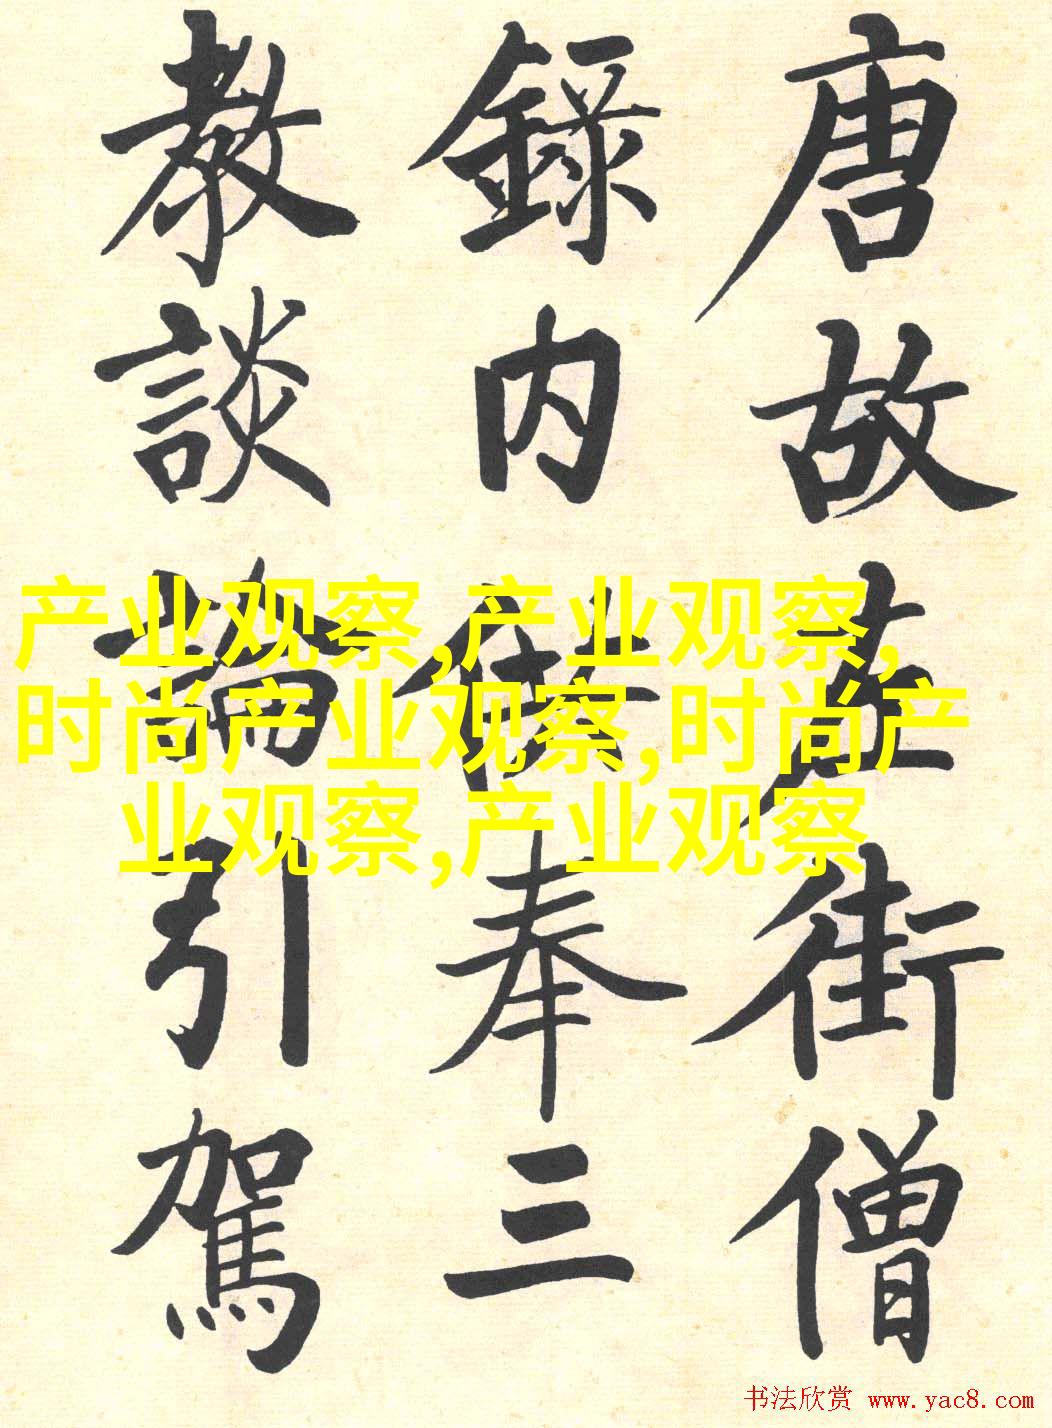 唐故左街僧
録内供奉三
教談論引駕
产业观察,产业观察,
时尚产业观察,时尚产
业观察,产业观察
书法欣赏 www.yac8.com